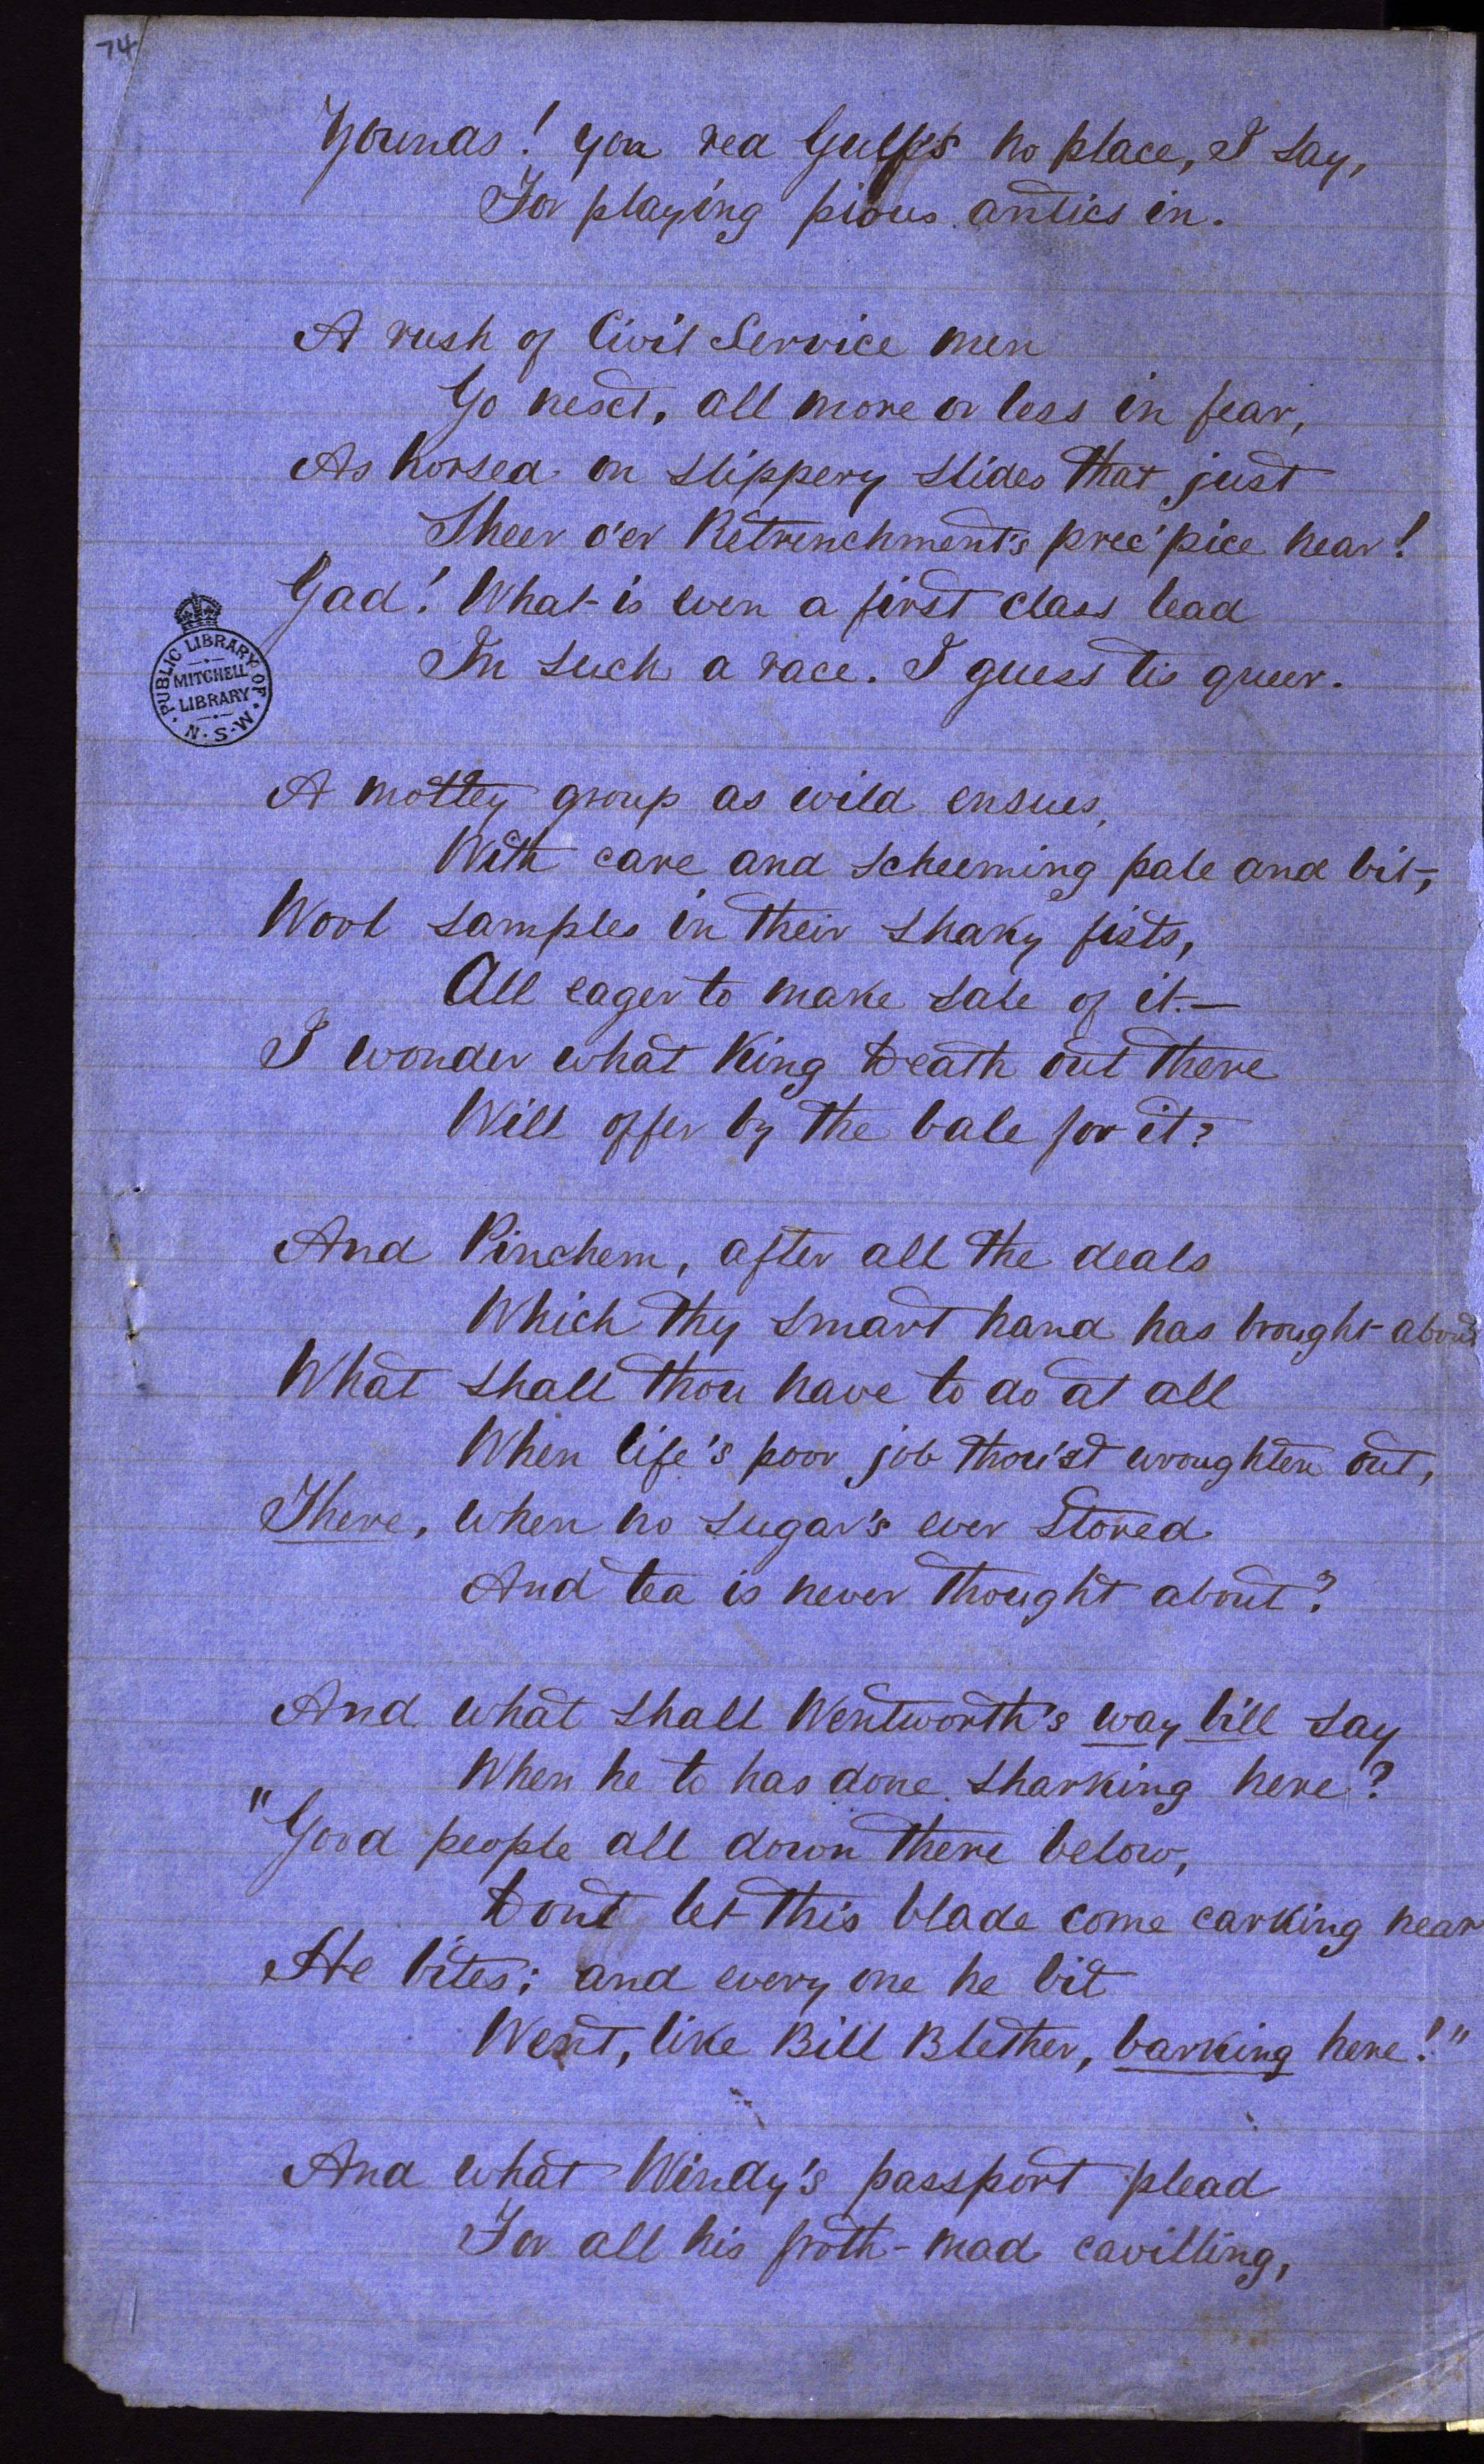 74
Younds! yon red Gulf's no place, I say,
For playing pious antics in.
A rush of Civil Service men
Go next, all more or less in fear,
As horsed on slippery slides that just
Sheer o'er Retrenchment's prec'pice near!
Gad! What is even a first class lead
In such a race. I guess tis queer.
PUBLIC LIBRARY OF N.S.W.
MITCHELL LIBRARY
A motley group as wild ensues,
With care and scheeming pale and bit,
Wool samples in their shaky fists,
All eager to make sale of it.—
I wonder what King Death out there
Will offer by the bale for it?
And Pinchem, after all the deals
Which thy smart hand has brought about
What shall thou have to do at all
When life's poor job thou'st wroughten out,
There, when no sugar's ever stored
And tea is never thought about?
And what shall Wentworth's way bill say
When he to has done sharking here?
"Good people all down there below,
Dont let this blade come carking near
He bites; and every one he bit
Went, like Bill Blether, barking here!"
And what Windy's passport plead
For all his froth-mad cavilling,